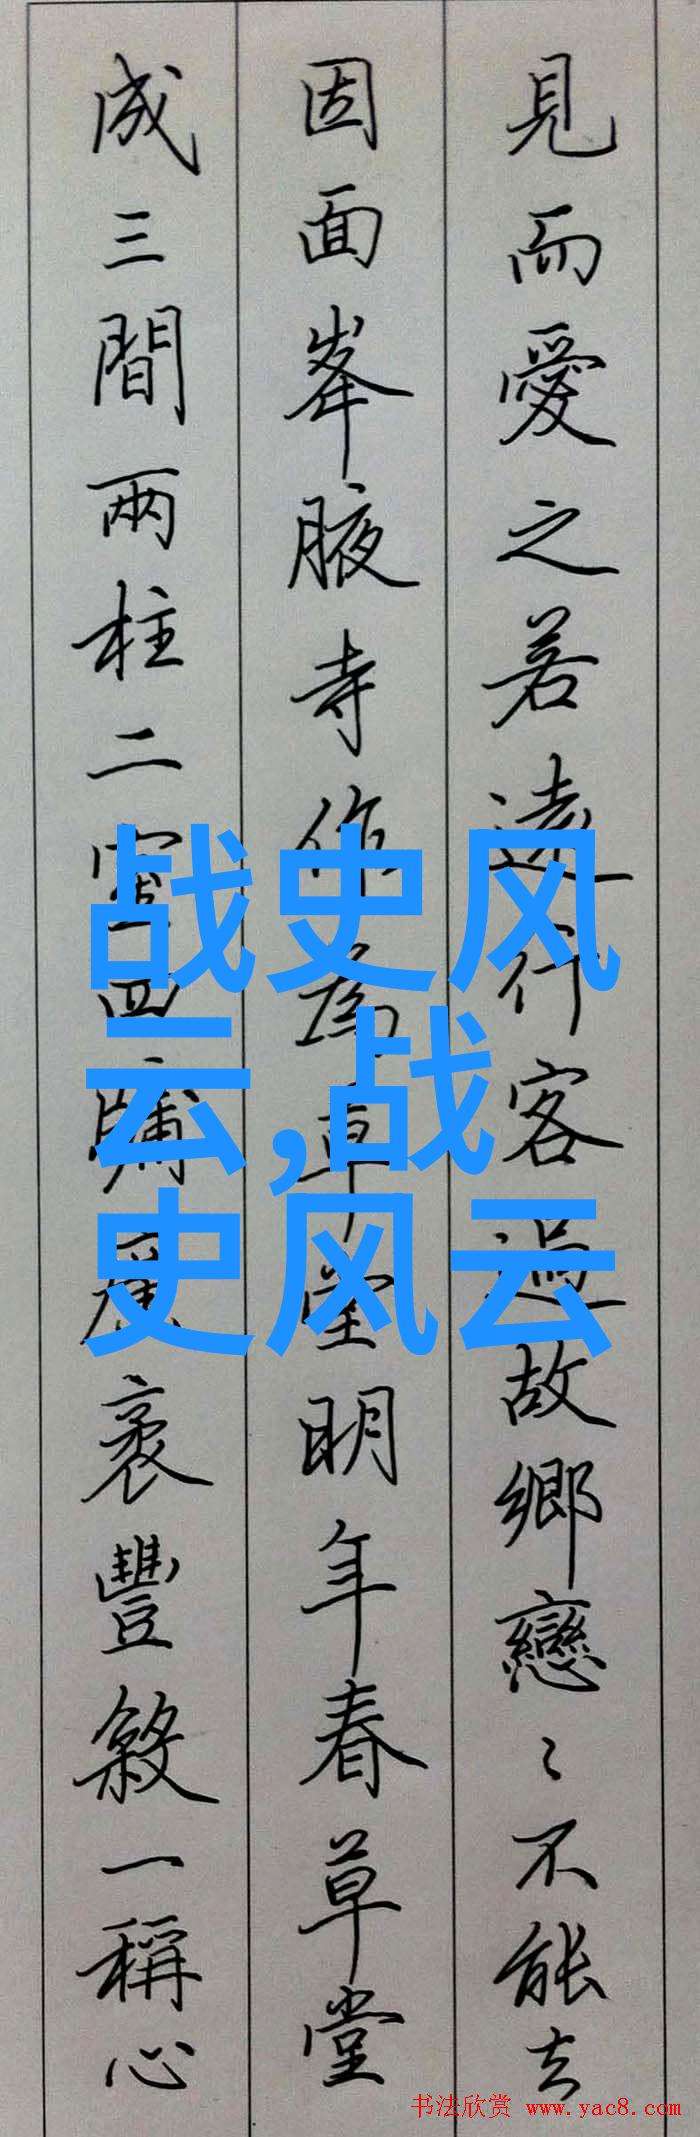 見而愛之若遠行客過故鄉戀〻不能去
因面峯腋寺作為草堂明年春草堂
成三間兩柱二室四牖廣袤豐殺一稱心
战史风
云,战
史风云
书法欣赏 www.yac8.com